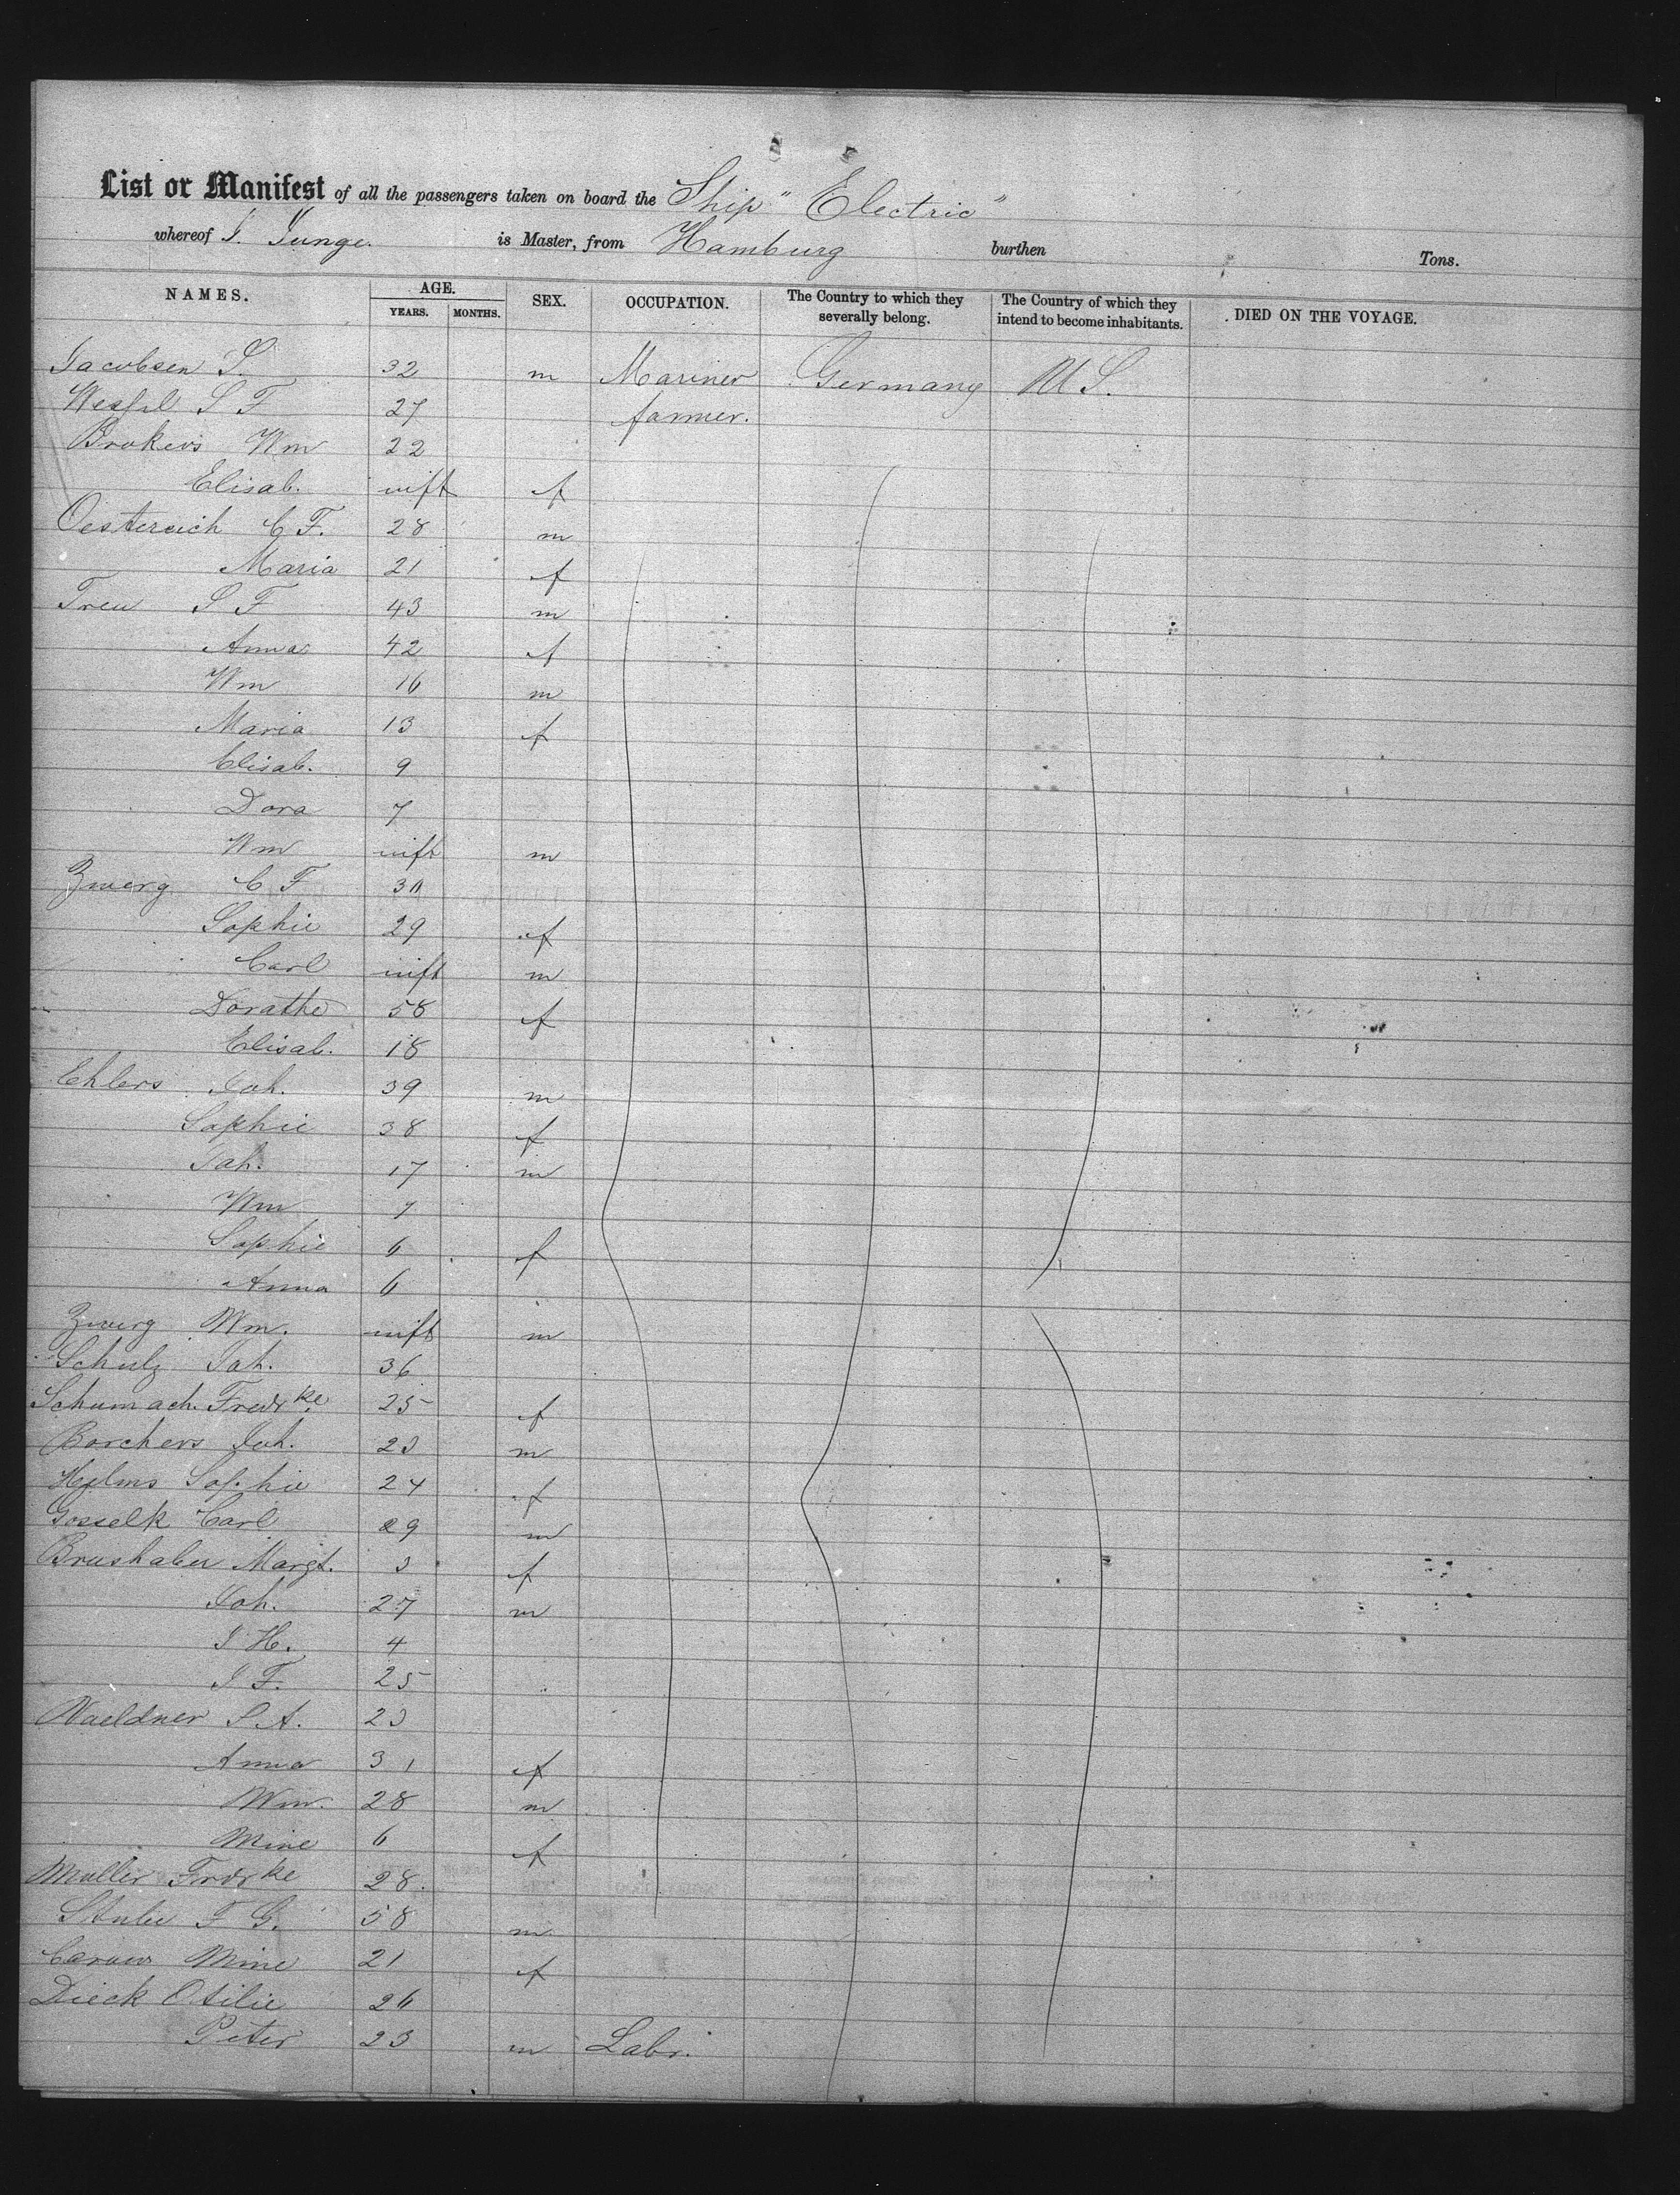 List or Manifest of all the passengers taken on board the Ship "Electric"
whereof J. Junge. is Master, from Hamburg burthen Tons.
NAMES. AGE. SEX. OCCUPATION. The Country to which they severally belong. The Country of which they intend to become inhabitants. DIED ON THE VOYAGE.
YEARS. MONTHS.
Jacobsen J. 32 m Mariner Germany U S.
27 farmer.
Brokers Wm 22
Elisab. inft f
Oestereich C F. 28 m
Maria 21 f
Treu J F 43 m
Anna 42 f
Wm 16 m
Maria 13 f
Elisab. 9
Dora 7
Wm inft m
Zwerg C F 30
Sophie 29 f
Carl inft m
Dorathe 58 f
Elisab. 18
Ehlers Joh. 39 m
Sophie 38 f
Joh. 17 m
Wm 7
Sophie 6 f
Anna 6
Zwerg Wm. inft m
Schulz Joh. 36
Schumach. Fredrke 25 f
Borchers Joh. 23 m
Helms Sophie 24 f
Gosselk Carl 29 m
Margt. 3 f
Joh. 27 m
J H. 4
J F. 25
Waeldner J. A. 23
Anna 31 f
Wm. 28 m
Mine 6 f
Muller Fredrke 28.
F G. 58 m
Mine 21 f
Dieck Otilie 26
Peter 23 m Labr.